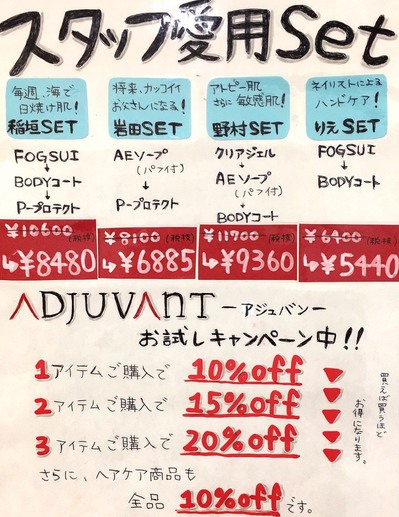 スタッフ愛用Set
毎週、海で
日焼け肌!
稲垣SET
FOGSUI
↓
BODYコート
↓
P-プロテクト
¥10600(税抜)
↳¥8480
将来、カッコイイ
お父さんになる!
岩田SET
AEソープ
(パフ付)
↓
P-プロテクト
¥8100(税抜)
↳¥6885
アトピー肌
さらに敏感肌!
野村SET
クリアジェル
↓
AEソープ
(パフ付)
↓
BODYコート
¥11700(税抜)
↳¥9360
ネイリストによる
ハンドケア!
りえSET
FOGSUI
↓
BODYコート
¥6400(税抜)
↳¥5440
ADJUVANT ーアジュバンー
お試しキャンペーン中!!
1アイテムご購入で 10%off
2アイテムご購入で 15%off
3アイテムご購入で 20%off
買えば買うほど
お得になります。
さらに、ヘアケア商品も
全品 10%offです。